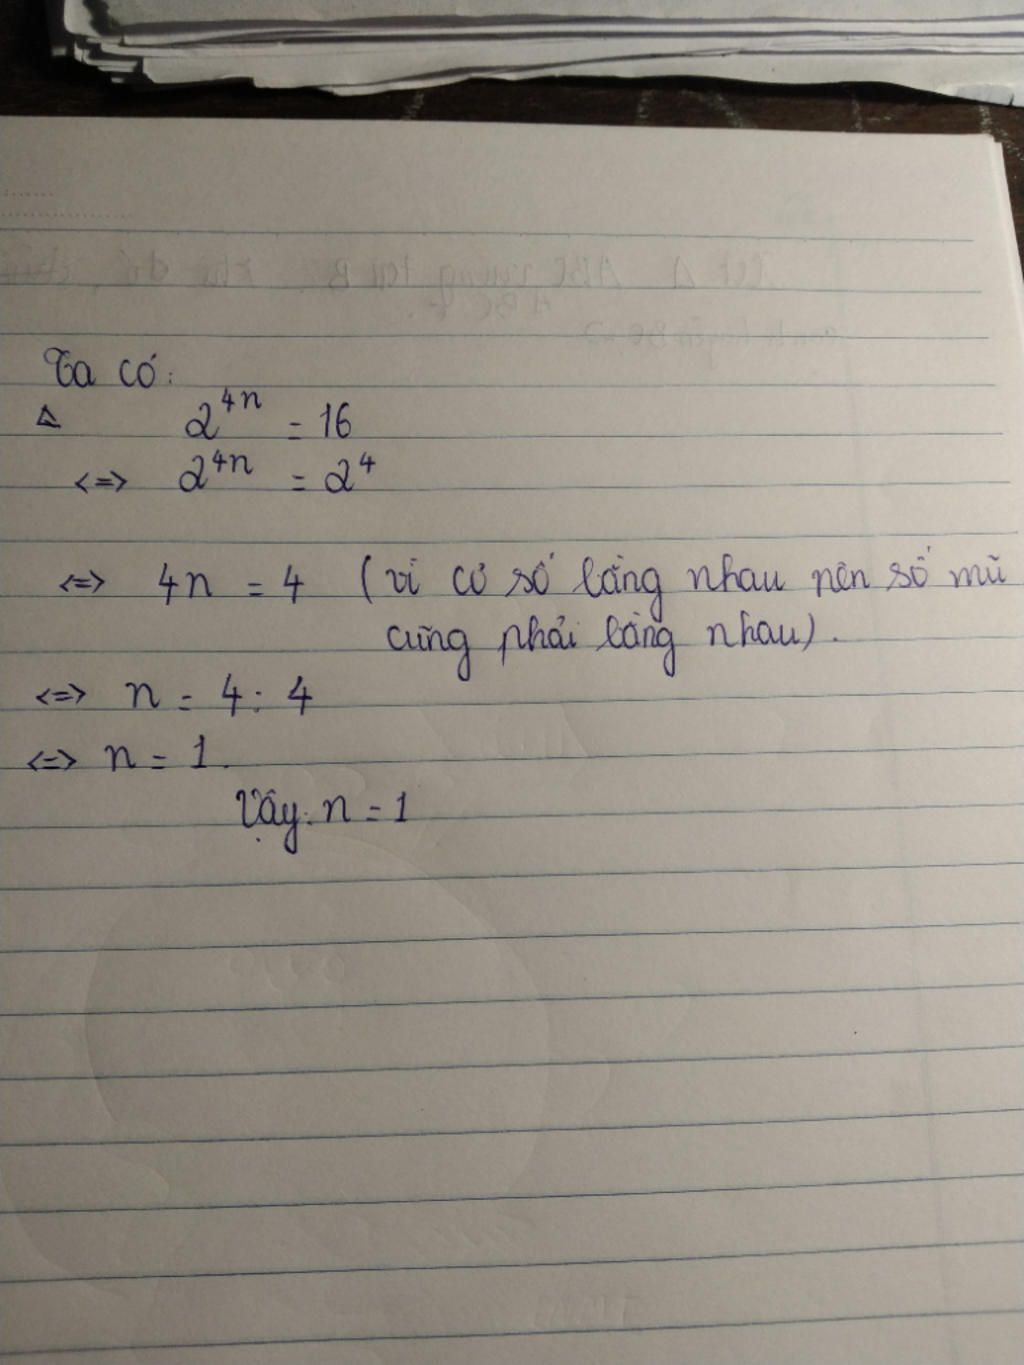 Ta có:
2^{4n} = 16
<=> 2^{4n} = 2^4
<=> 4n = 4 (vì cơ số bằng nhau nên số mũ
cũng phải bằng nhau).
<=> n = 4 : 4
<=> n = 1.
Vậy: n = 1